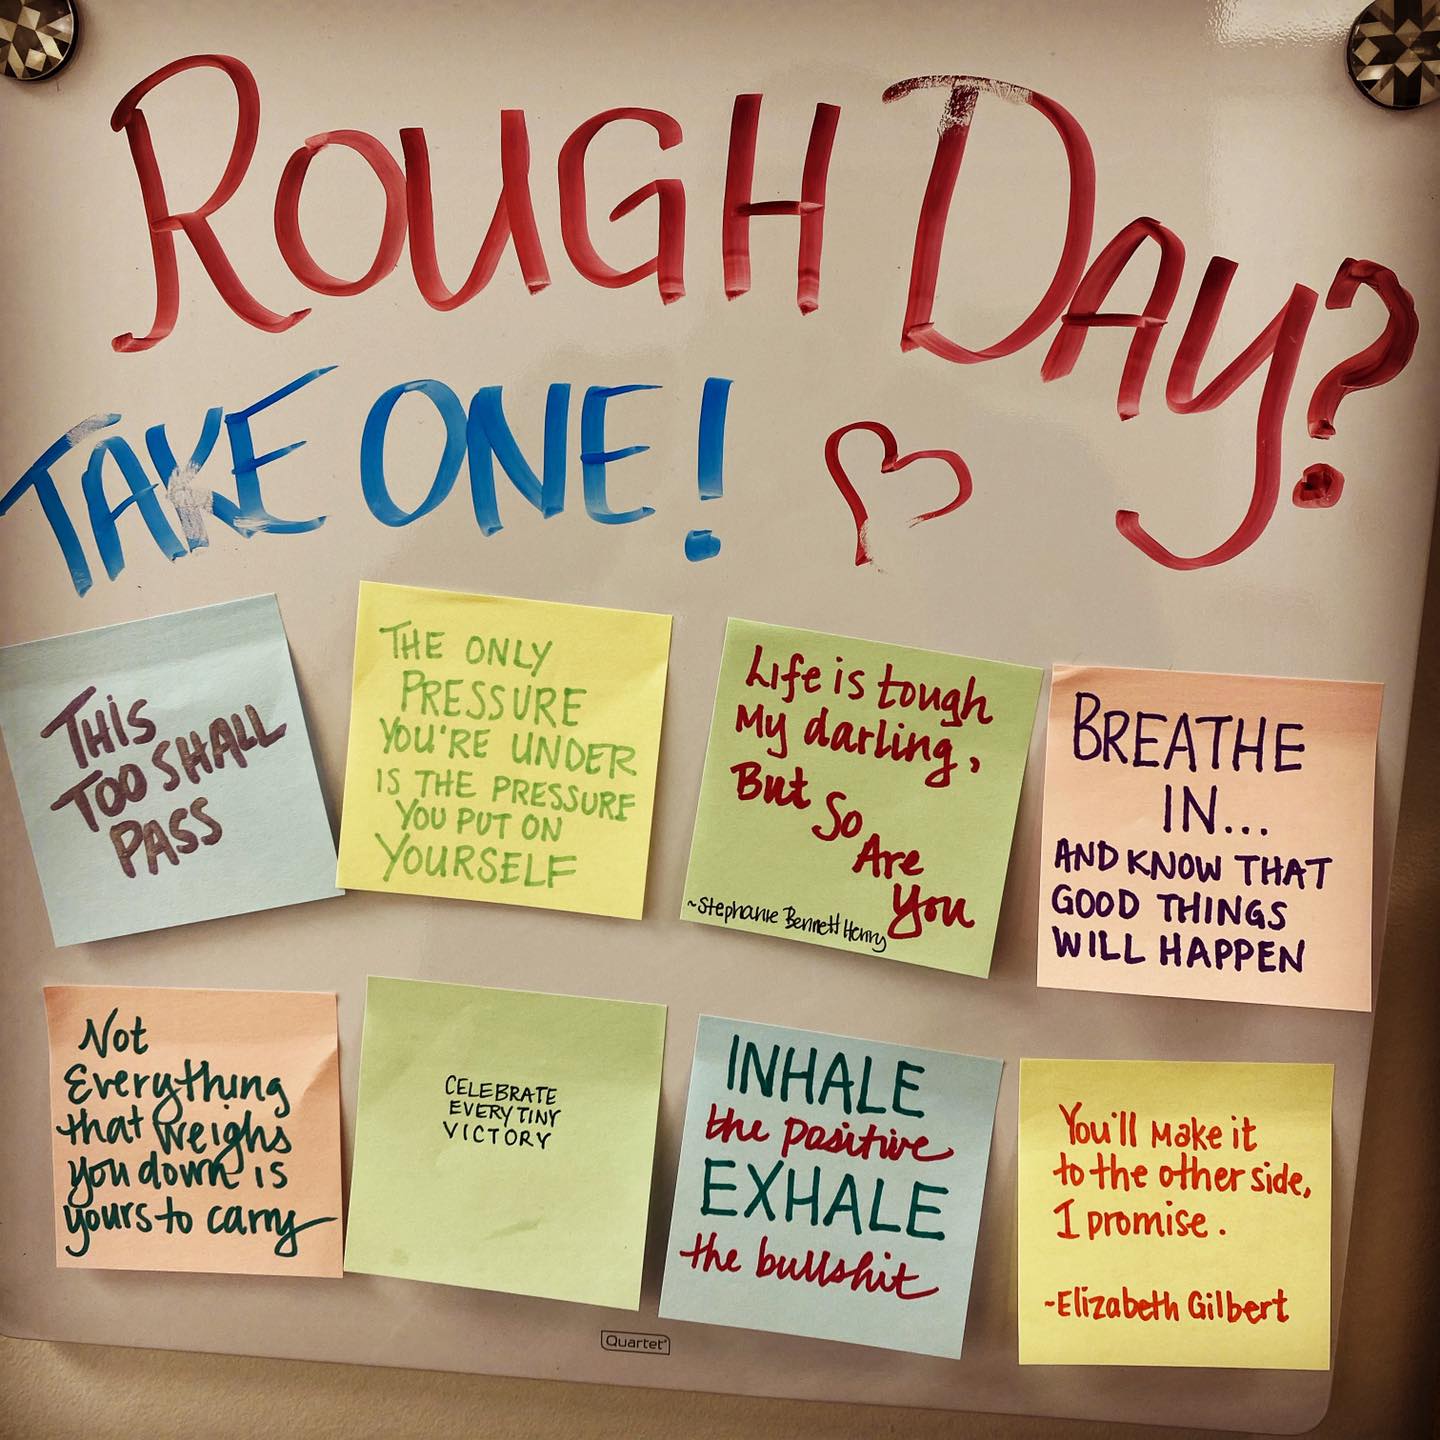 ROUGH DAY?
TAKE ONE!
THIS
TOO SHALL
PASS
THE ONLY
PRESSURE
YOU'RE UNDER
IS THE PRESSURE
YOU PUT ON
YOURSELF
Life is tough
My darling,
But So
Are
You
~Stephanie Bennett Henry
BREATHE
IN...
AND KNOW THAT
GOOD THINGS
WILL HAPPEN
Not
Everything
that weighs
you down is
yours to carry
CELEBRATE
EVERY TINY
VICTORY
INHALE
the positive
EXHALE
the bullshit
You'll make it
to the other side,
I promise.
~Elizabeth Gilbert
Quartet